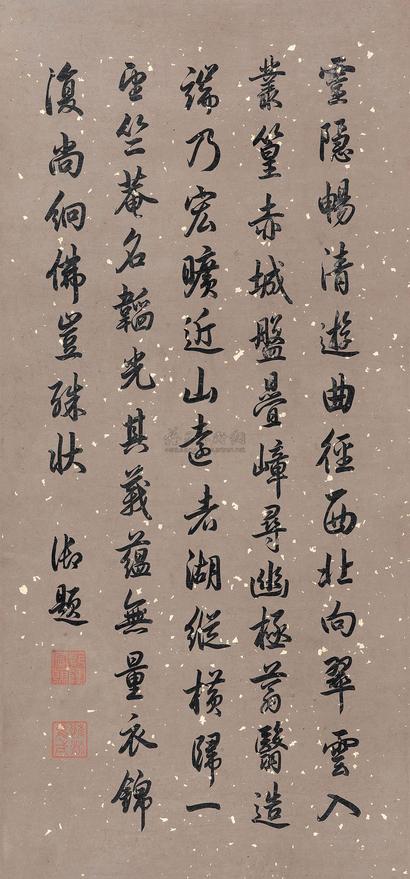 靈隱暢清遊曲徑西北向翠雲入
叢篁赤城盤疊嶂尋幽極蓊翳造
端乃宏曠近山遠者湖縱橫歸一
望竺菴名韜光其義蘊無量衣錦
復尚絅佛豈殊狀 御題